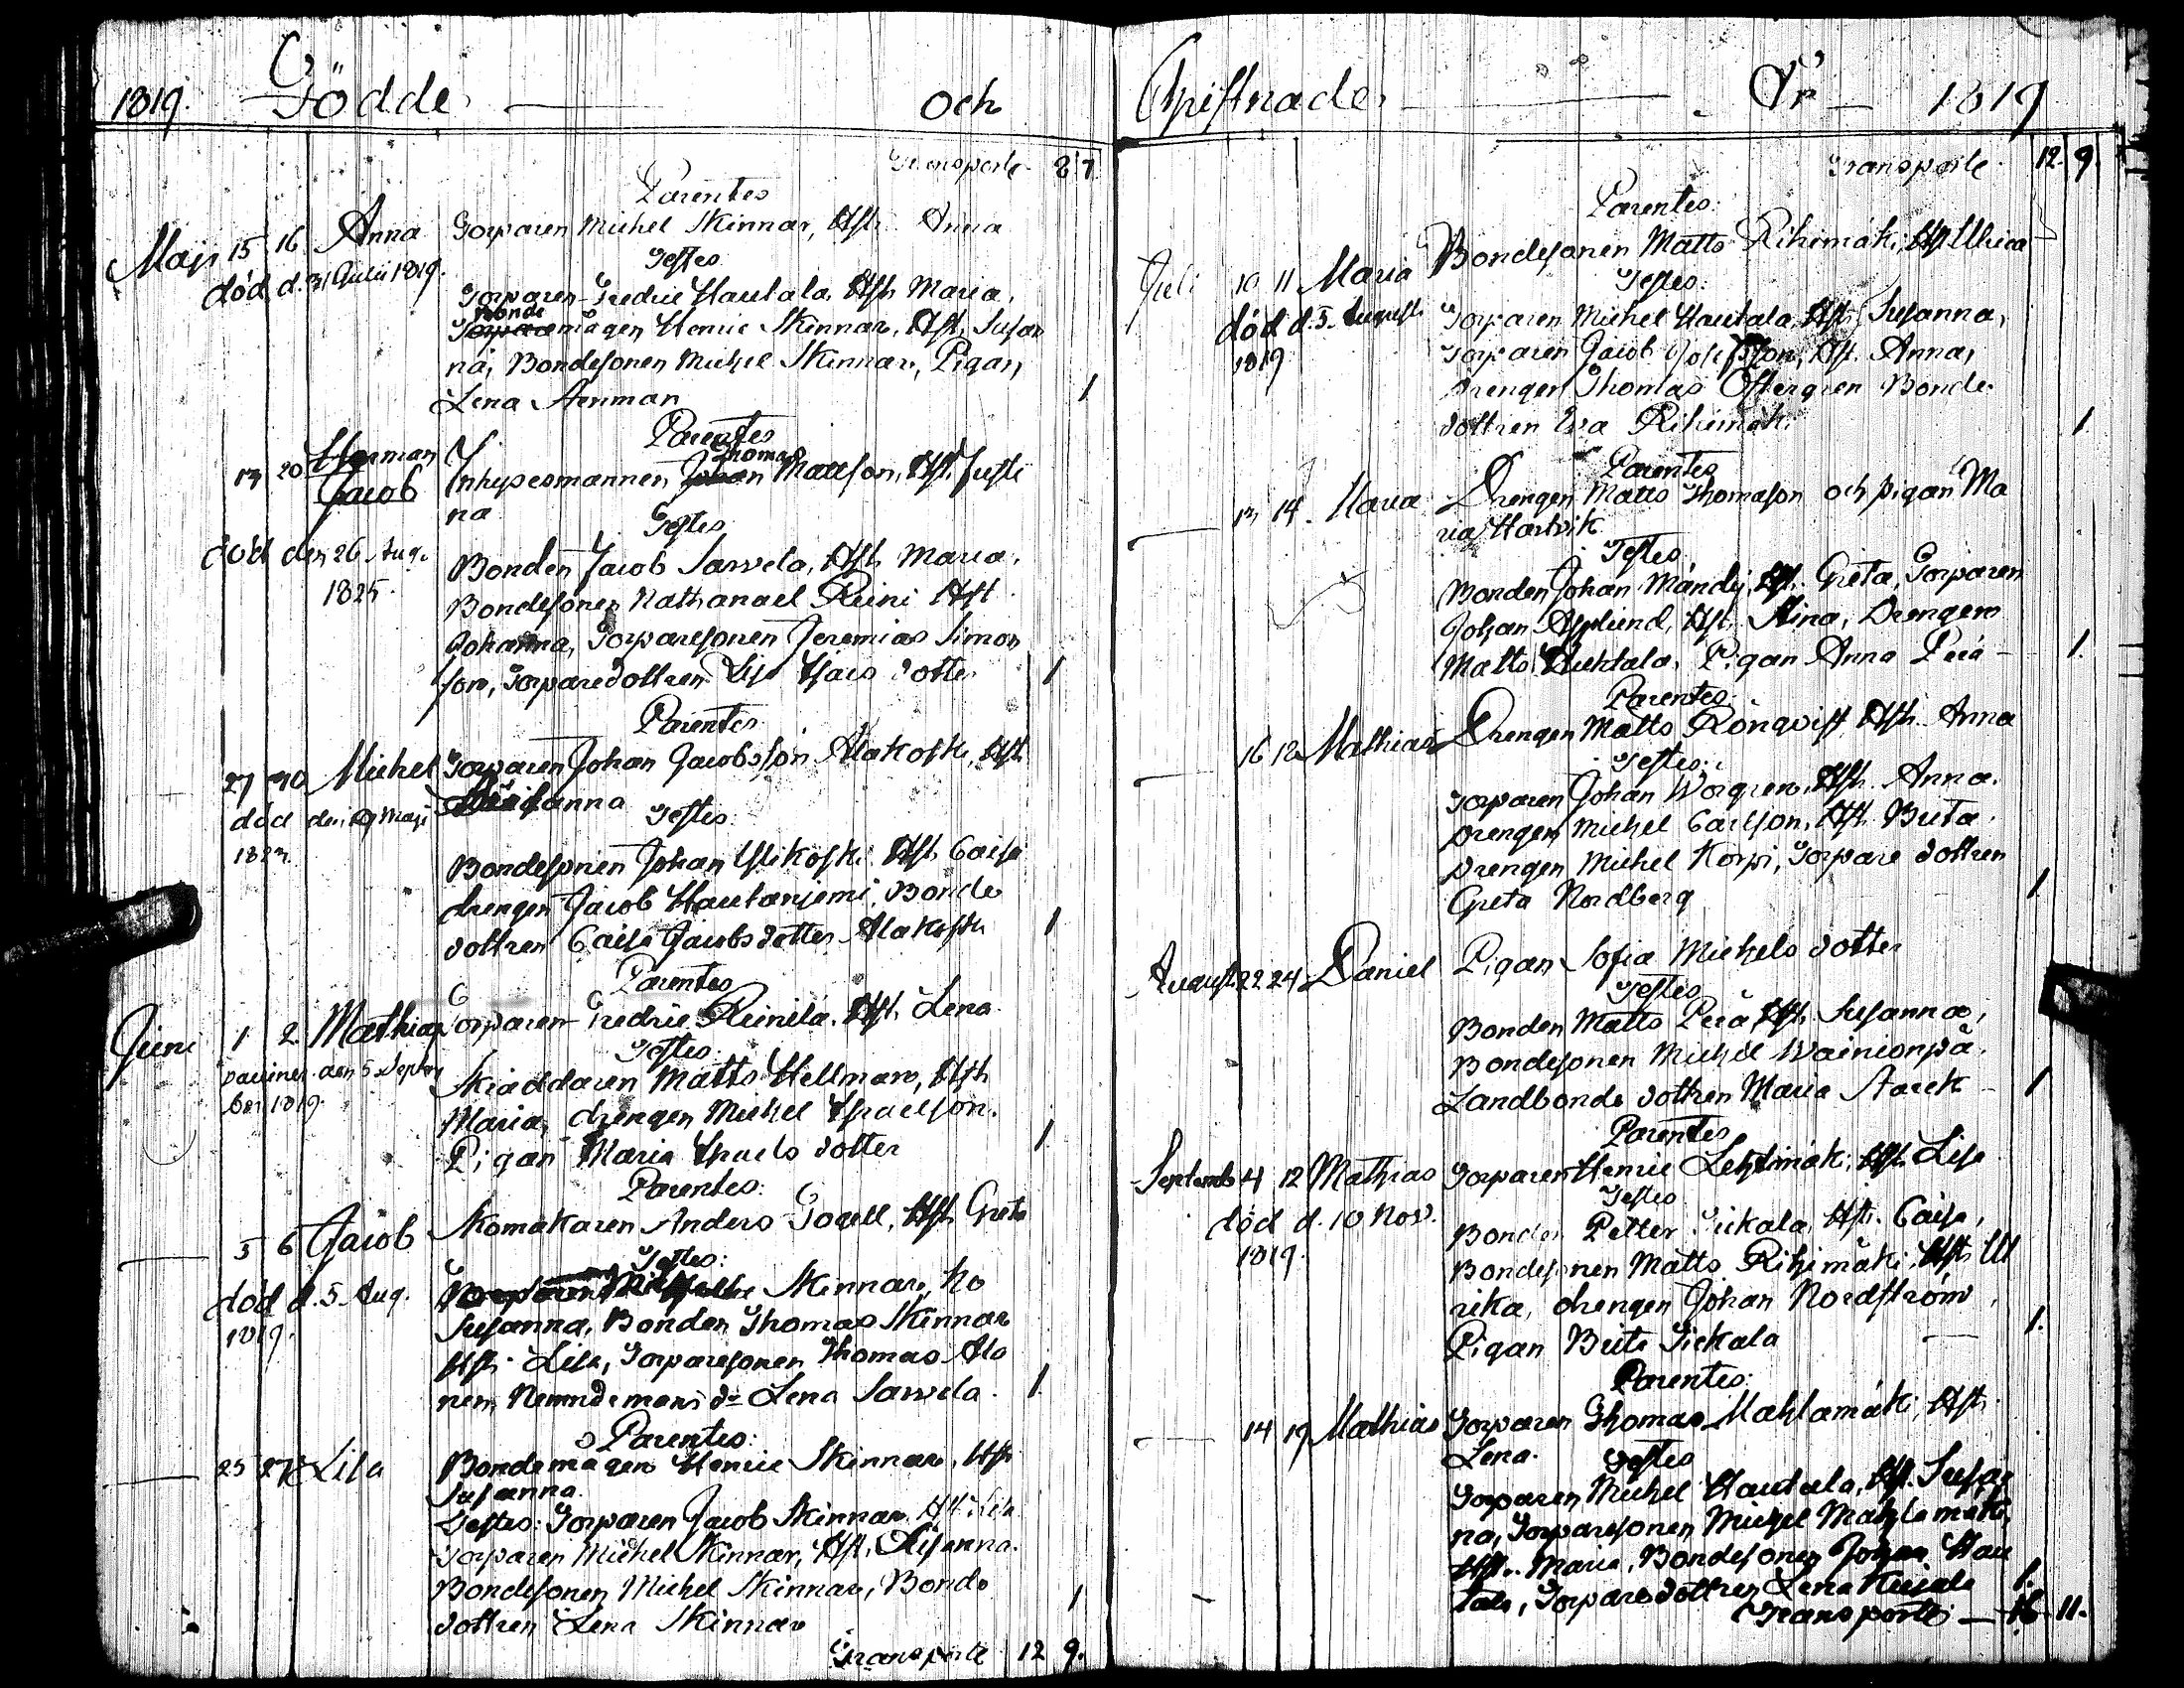 1819. Födde och
Transporte 8 7
Parentes
Maji 15 16 Anna Torparen Michel Skinnar, Hst. Anna
död d. 31 Julii 1819.
Testes
Torparen Fredric Hautala, Hst. Maria,
Bonde
mågen Henric Skinnar, Hst. Susan
na, Bondesonen Michel Skinnar, Pigan
Lena Aenman 1
Parentes
Thomas
19 20 Herman Inhysesmannen Johan Mattson, Hst. Justi
Jacob na
Testes
död den 26 Aug. Bonden Jacob Sarvela, Hst. Maria,
1825. Bondesonen Nathanael Reini Hst
Johanna, Torparesonen Jeremias Simon
son, Torparedottren Lisa Isacs dotter 1
Parentes
27 30 Michel Torparen Johan Jacobsson Alakoski, Hst
Susanna
död den 19 Maji
Testes
Bondesonen Johan Ylikoski Hst. Caisa
drengen Jacob Hautaniemi, Bonde
dottren Caisa Jacobs dotter Alakoski 1
Parentes
Juni 1 2 Mathias Torparen Fredric Reinila, Hst. Lena
Testes
den 5 Septem
ber 1819.
Skräddaren Matts Hellman, Hst
Maria, drengen Michel Israelson.
Pigan Maria Israels dotter 1
Parentes:
5 6 Jacob Skomakaren Anders Fogell, Hst. Greta
Testes:
död d. 5 Aug. Skinnar, ho
1819. Susanna, Bonden Thomas Skinnar
Hst. Lisa, Torparesonen Thomas Alo
nen, Nemndemans dr Lena Sarvela. 1
Parentes:
25 27 Lisa Bondemågen Henric Skinnar, Hst
Susanna.
Testes: Torparen Jacob Skinnar Hst. Lisa
Torparen Michel Skinnar, Hst, Susanna.
Bondesonen Michel Skinnar, Bonde
dottren Lena Skinnar 1
Transporte 12 9.
Christnade År 1819
Transporte 12. 9.
Parentes:
Juli 10 11 Maria Bondesonen Matts Rihimäki, Hst Ulrica
Testes.
död d. 5. Augusti Torparen Michel Hautala, Hst. Susanna,
1819 Torparen Jacob Josefsson, Hst. Anna,
Drengen Thomas Östergren Bonde
dottren Eva Rihimäki 1.
Parentes
13 14. Maria Drengen Matts Thomason och pigan Ma
ria Hartvik
Testes
Bonden Johan Mändy, Hst. Greta, Torparen
Johan Asplund, Hst. Stina, Drengen
Matts Huhtala, Pigan Anna Perä 1.
Parentes:
16 18 Mathias Drengen Matts Rönqvist Hst. Anna
Testes:
Torparen Johan Worgren, Hst. Anna.
Drengen Michel Carlson, Hst. Brita.
Drengen Michel Korpi, Torpare dottren
Greta Nordberg 1
August. 22 24 Daniel Pigan Sofia Michels dotter
Testes
Bonden Matts Perä, Hst. Susanna,
Bondesonen Michel Wainionpä.
Landbonde dottren Maria Starck 1
Parentes
Septemb 4 12 Mathias Torparen Henric Lehtimäki, Hst. Lisa
Testes
död d. 10 Nov. Bonden Petter Sickala, Hst. Caisa,
1819. Bondesonen Matts Rihimäki, Hst. Ul
rika, drengen Johan Nordström,
Pigan Brita Sickala 1.
Parentes:
14 19 Mathias Torparen Thomas Mahlamäki, Hst.
Lena. Testes
Torparen Michel Hautala, Hst. Susan
na, Torparesonen Michel Mahlamäki,
Hst. Maria, Bondesonen Johan Hau
tala, Torparedottren Lena 1.
Transporte 16 11.